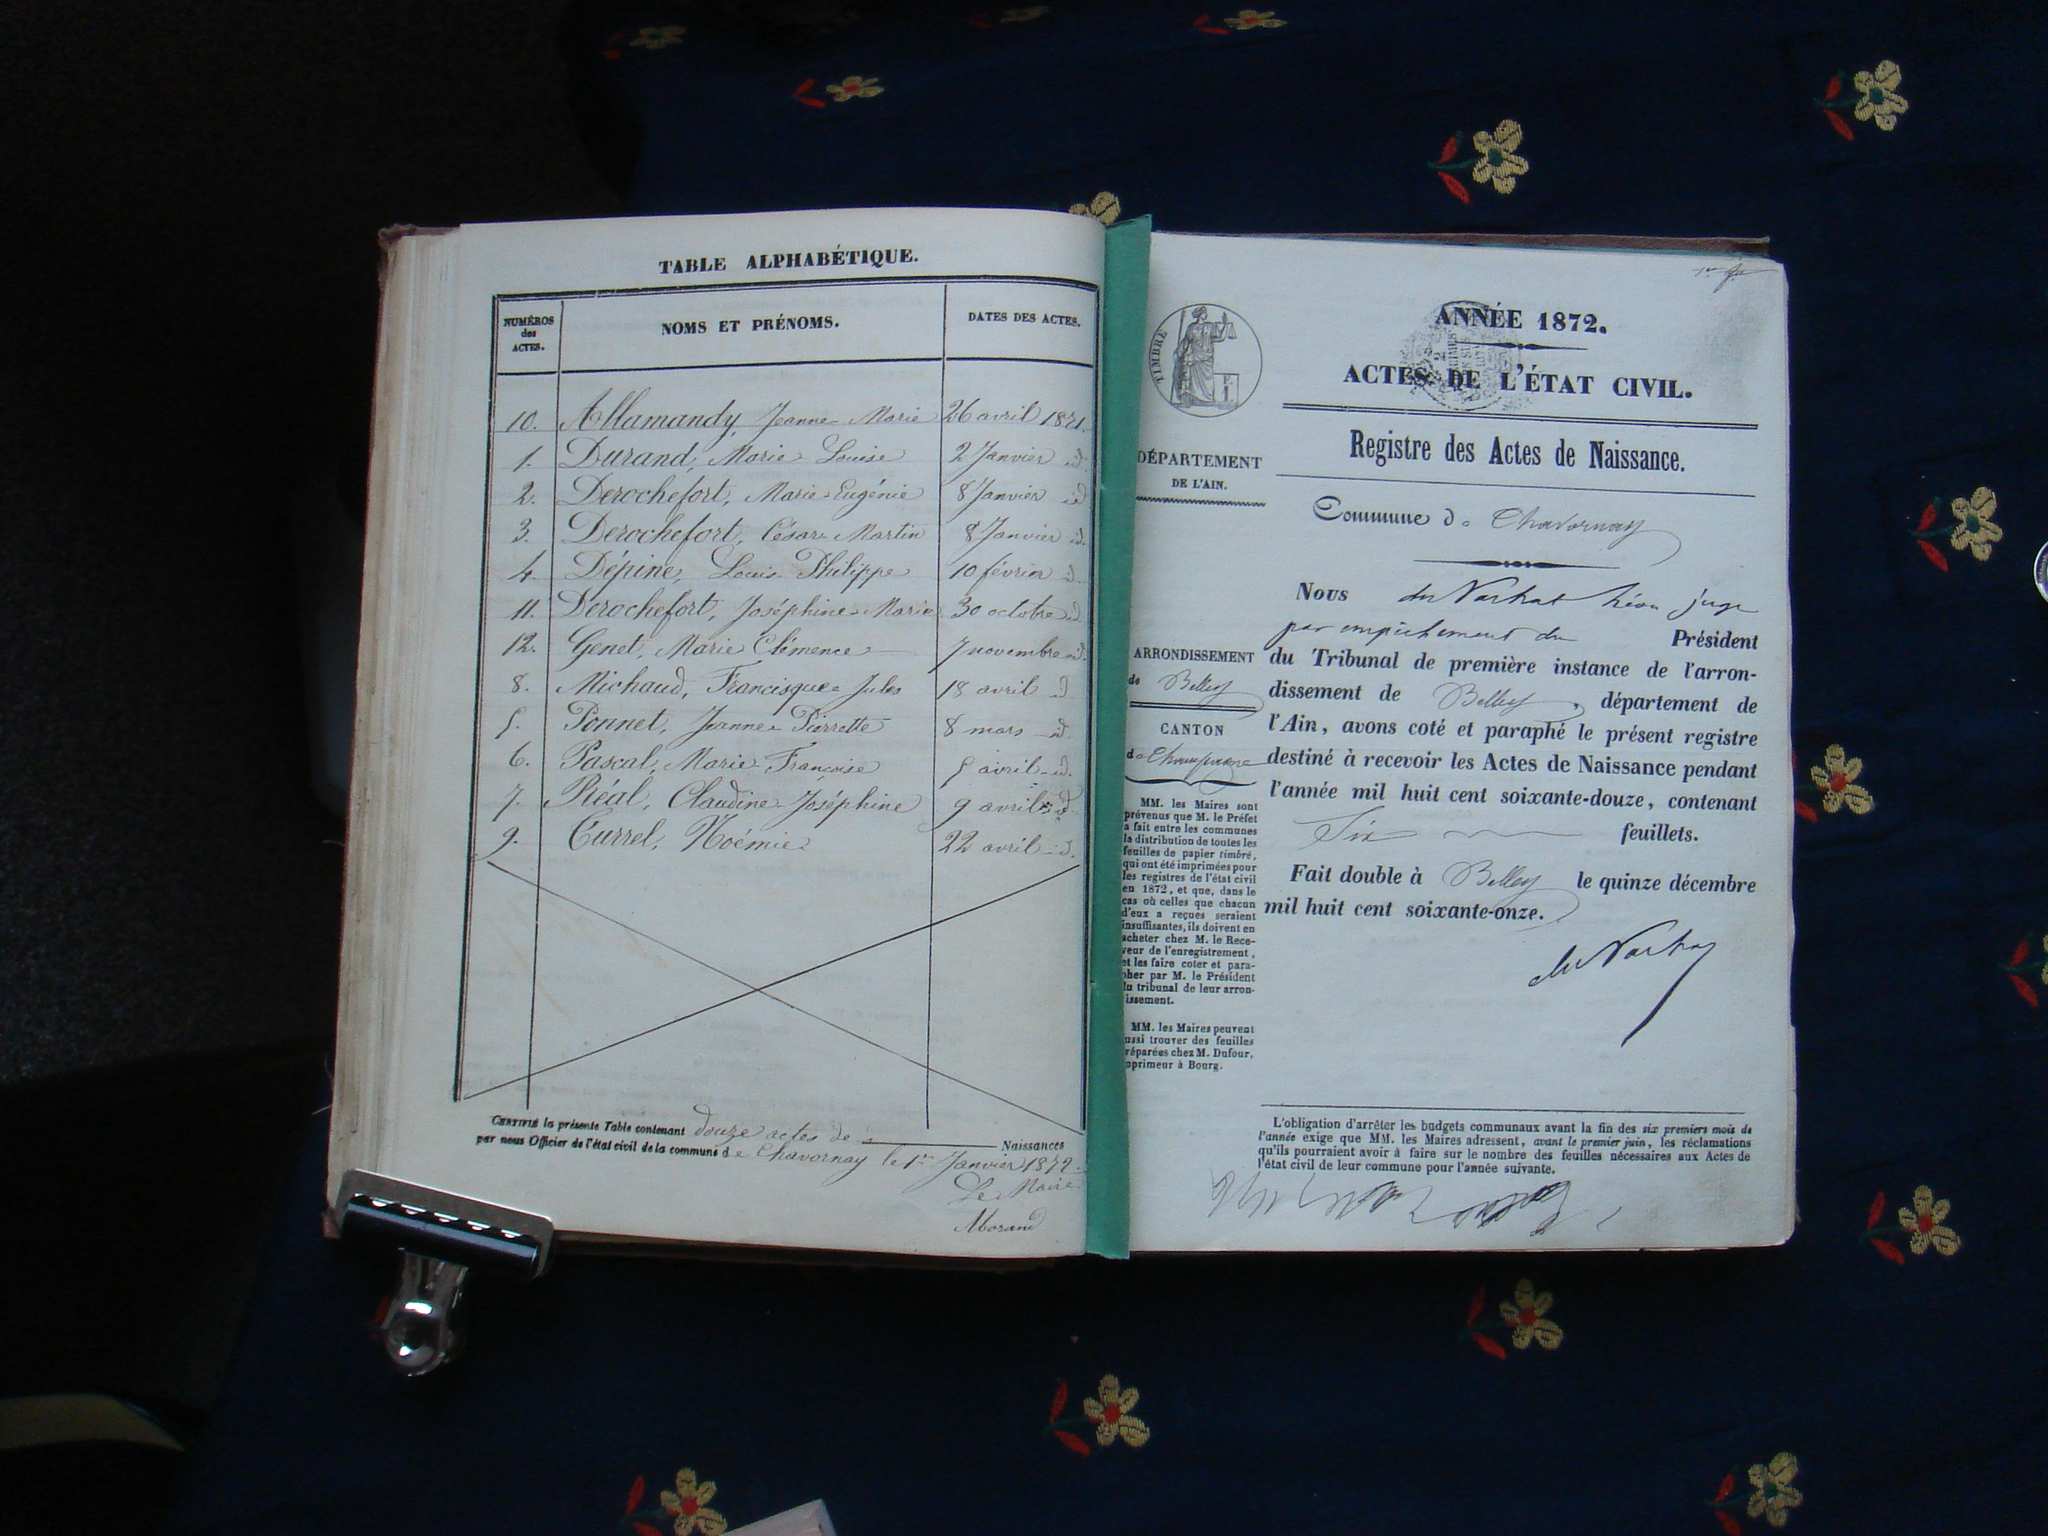 TABLE ALPHABÉTIQUE.
NUMÉROS des ACTES. NOMS ET PRÉNOMS. DATES DES ACTES.
10. Allamandy, Jeanne Marie 26 avril 1871.
1. Durand, Marie Louise 2 Janvier id.
2. Derochefort, Marie Eugénie 8 Janvier id
3. Derochefort, César Martin 8 Janvier id.
4. Dépine, Louis Philippe 10 février id.
11. Derochefort, Joséphine Marie 30 octobre id
12. Genet, Marie Clémence 7 novembre id.
8. Michaud, Francisque Jules 18 avril id
5. Ponnet, Jeanne Pierrette 8 mars id.
6. Pascal, Marie Françoise 5 avril id.
7. Réal, Claudine Joséphine 9 avril id.
9. Currel, Noémie 22 avril id.
CERTIFIÉ la présente Table contenant douze actes de Naissances
par nous Officier de l'état civil de la commune de Chavornay le 1er Janvier 1872.
Le Maire
Morand
TIMBRE
ANNÉE 1872.
ACTES DE L'ÉTAT CIVIL.
Registre des Actes de Naissance.
DÉPARTEMENT
DE L'AIN.
Commune de Chavornay
ARRONDISSEMENT
de Belley
CANTON
de Champagne
MM. les Maires sont
prévenus que M. le Préfet
a fait entre les communes
la distribution de toutes les
feuilles de papier timbré,
qui ont été imprimées pour
les registres de l'état civil
en 1872, et que, dans le
cas où celles que chacun
d'eux a reçues seraient
insuffisantes, ils doivent en
acheter chez M. le Rece-
veur de l'enregistrement,
et les faire coter et para-
pher par M. le Président
du tribunal de leur arron-
issement.
MM. les Maires peuvent
ussi trouver des feuilles
réparées chez M. Dufour,
mprimeur à Bourg.
Nous juge
par empêchement du Président
du Tribunal de première instance de l'arron-
dissement de Belley, département de
l'Ain, avons coté et paraphé le présent registre
destiné à recevoir les Actes de Naissance pendant
l'année mil huit cent soixante-douze, contenant
Six feuillets.
Fait double à Belley le quinze décembre
mil huit cent soixante-onze.
L'obligation d'arrêter les budgets communaux avant la fin des six premiers mois de
l'année exige que MM. les Maires adressent, avant le premier juin, les réclamations
qu'ils pourraient avoir à faire sur le nombre des feuilles nécessaires aux Actes de
l'état civil de leur commune pour l'année suivante.